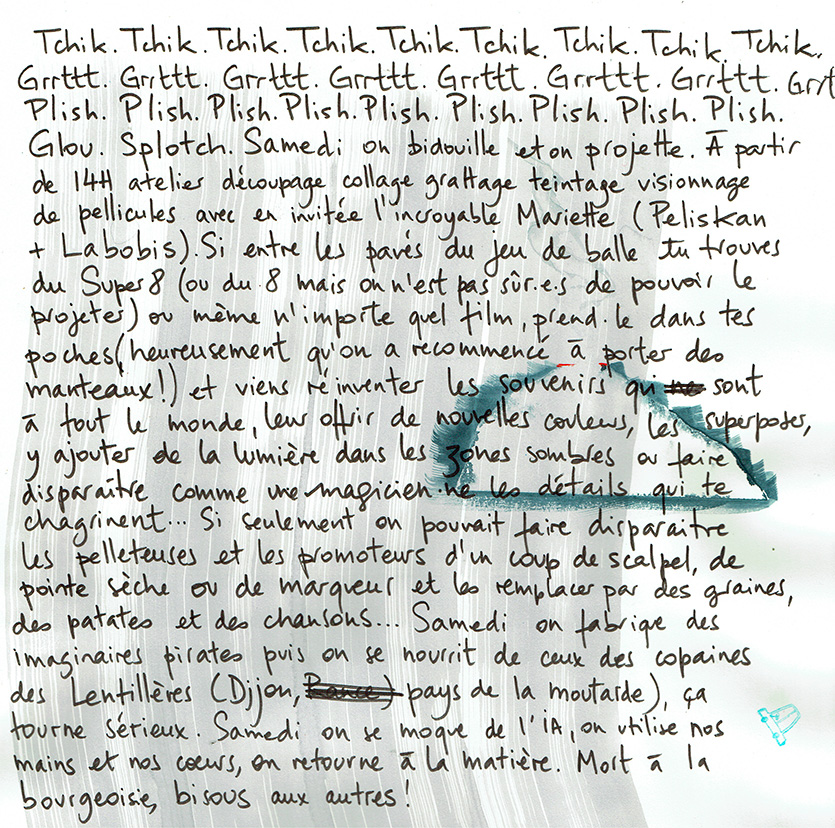 Tchik. Tchik. Tchik. Tchik. Tchik. Tchik. Tchik. Tchik. Tchik.
Grrttt. Grrttt. Grrttt. Grrttt. Grrttt. Grrttt. Grrttt. Grrt
Plish. Plish. Plish. Plish. Plish. Plish. Plish. Plish. Plish.
Glou. Splotch. Samedi on bidouille et on projette. À partir
de 14H atelier découpage collage grattage teintage visionnage
de pellicules avec en invitée l'incroyable Mariette (Peliskan
+ Labobis). Si entre les pavés du jeu de balle tu trouves
du Super8 (ou du 8 mais on n'est pas sûr.e.s de pouvoir le
projeter) ou même n'importe quel film, prend-le dans tes
poches (heureusement qu'on a recommencé à porter des
manteaux!) et viens réinventer les souvenirs qui ne sont
à tout le monde, leur offrir de nouvelles couleurs, les superposer,
y ajouter de la lumière dans les zones sombres ou faire
disparaître comme une magicien·ne les détails qui te
chagrinent... Si seulement on pouvait faire disparaitre
les pelleteuses et les promoteurs d'un coup de scalpel, de
pointe sèche ou de marqueur et les remplacer par des graines,
des patates et des chansons... Samedi on fabrique des
imaginaires pirates puis on se nourrit de ceux des copaines
des Lentillères (Dijon, France) pays de la moutarde), ça
tourne sérieux. Samedi on se moque de l'IA, on utilise nos
mains et nos cœurs, on retourne à la matière. Mort à la
bourgeoisie, bisous aux autres!